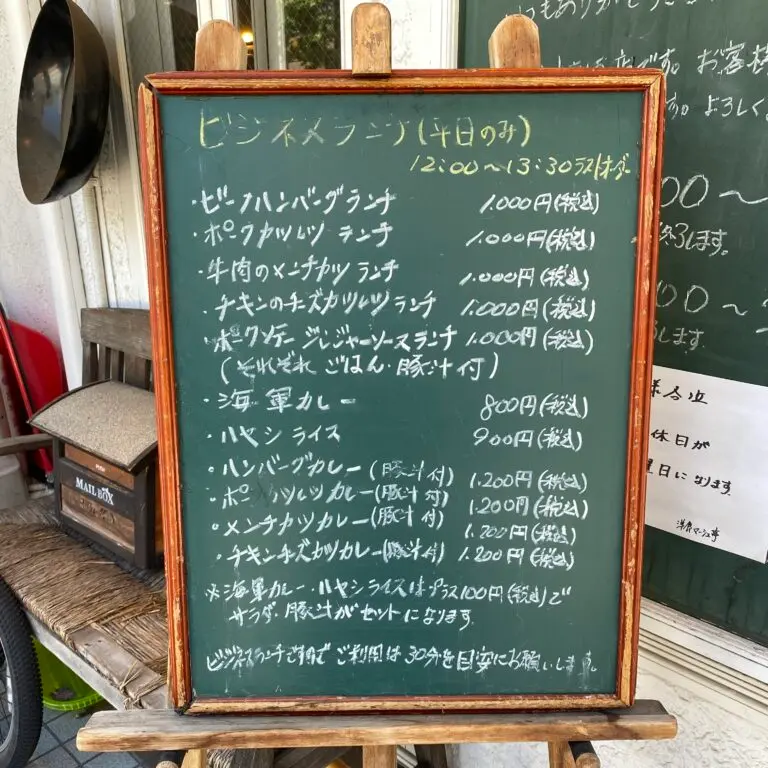 ビジネスランチ(平日のみ)
12:00〜13:30ラストオーダー
・ビーフハンバーグランチ 1.000円(税込)
・ポークカツレツ ランチ 1.000円(税込)
・牛肉のメンチカツ ランチ 1.000円(税込)
・チキンのチーズカツレツ ランチ 1.000円(税込)
・ポークソテー ジンジャーソースランチ 1.000円(税込)
(それぞれ ごはん・豚汁 付)
・海軍カレー 800円(税込)
・ハヤシライス 900円(税込)
・ハンバーグカレー(豚汁付) 1.200円(税込)
・ポークカツレツカレー(豚汁付) 1.200円(税込)
・メンチカツカレー(豚汁付) 1.200円(税込)
・チキンチーズカツカレー(豚汁付) 1.200円(税込)
※海軍カレー・ハヤシライスはプラス100円(税込)で
サラダ・豚汁がセットになります。
ビジネスランチですので ご利用は 30分を目安にお願いします。
MAIL BOX
お客様
す。よろしく
00〜
終了します。
00〜
します。
休日が
曜日になります